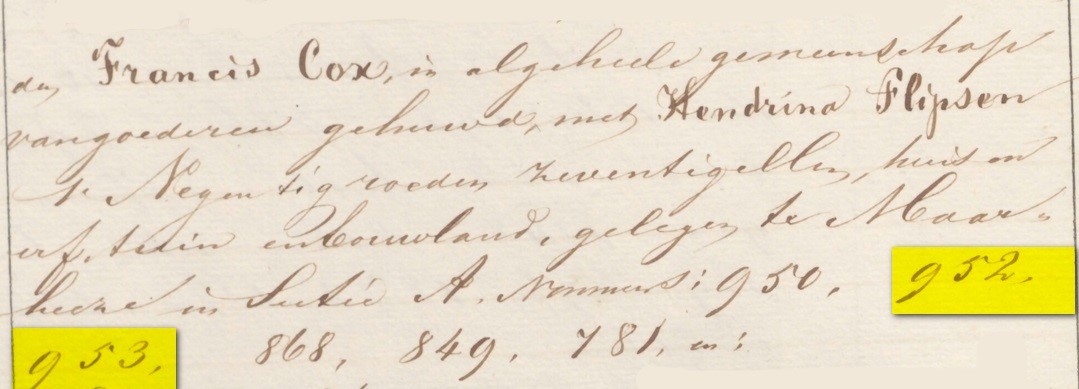 den Francis Cox, in algeheele gemeenschap
van goederen gehuwd, met Hendrina Flipsen
1e Negentig roeden zeventig ellen, huis en
erf, tuin en bouwland, gelegen te Maar-
heeze in Sectie A. Nommers: 950, 952,
953, 868, 849, 781, en: